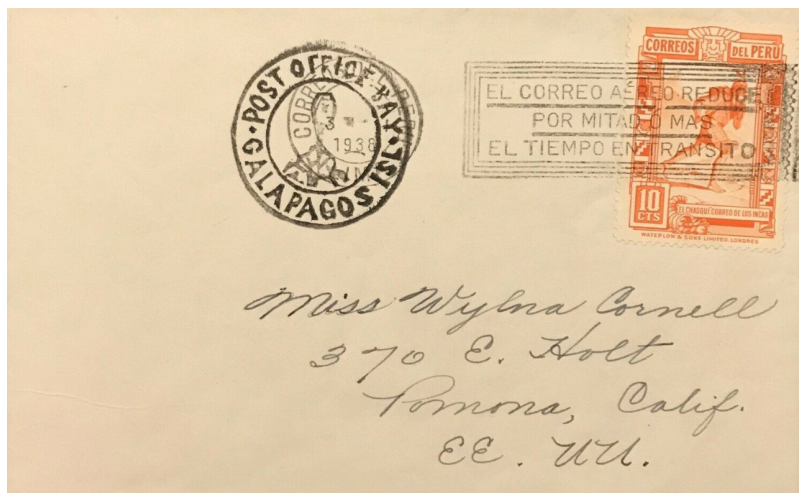 POST OFFICE BAY
GALAPAGOS ISL.
CORREOS DEL PERU
3
1938
EL CORREO AEREO REDUCE
POR MITAD O MAS
EL TIEMPO EN TRANSITO
CORREOS DEL PERU
10
CTS
EL CHASQUI CORREO DE LOS INCAS
WATERLOW & SONS LIMITED, LONDRES
Miss Wylna Cornell
370 E. Holt
Pomona, Calif.
EE. UU.